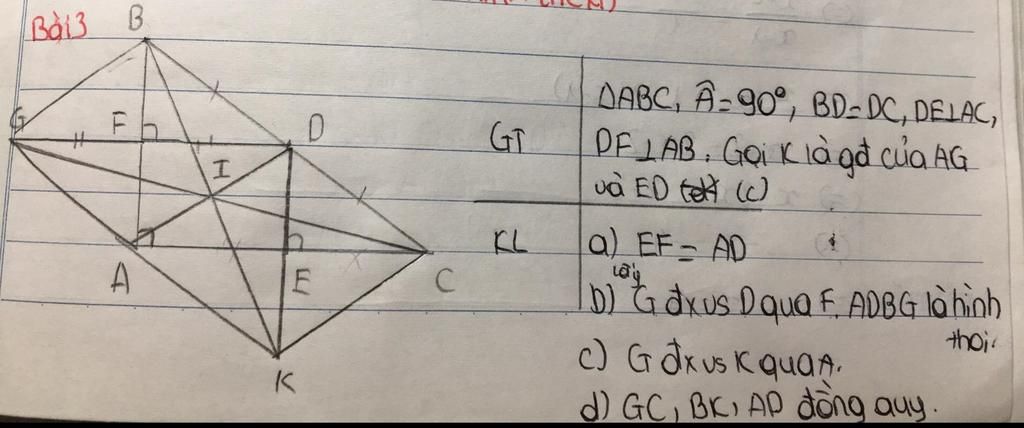 Bài 3
B
G
F
D
I
A
E
C
K
GT
ΔABC, Â=90°, BD=DC, DE⊥AC,
DF⊥AB. Gọi K là gđ của AG
và ED (c)
KL
a) EF = AD
lấy
b) G đx vs D qua F. ADBG là hình
thoi.
c) G đx vs K qua A.
d) GC, BK, AD đồng quy.